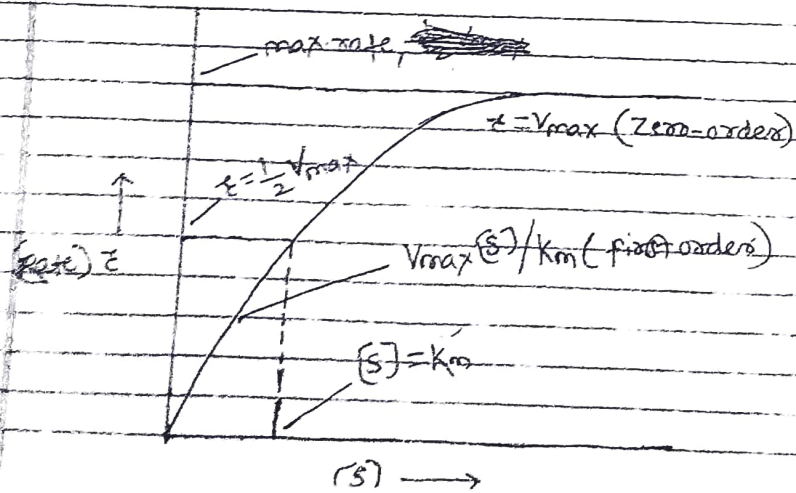 max. rate,
r = Vmax (Zero-order)
r = 1/2 Vmax
(rate) r
Vmax [S]/Km (first order)
[S] = Km
[S] →